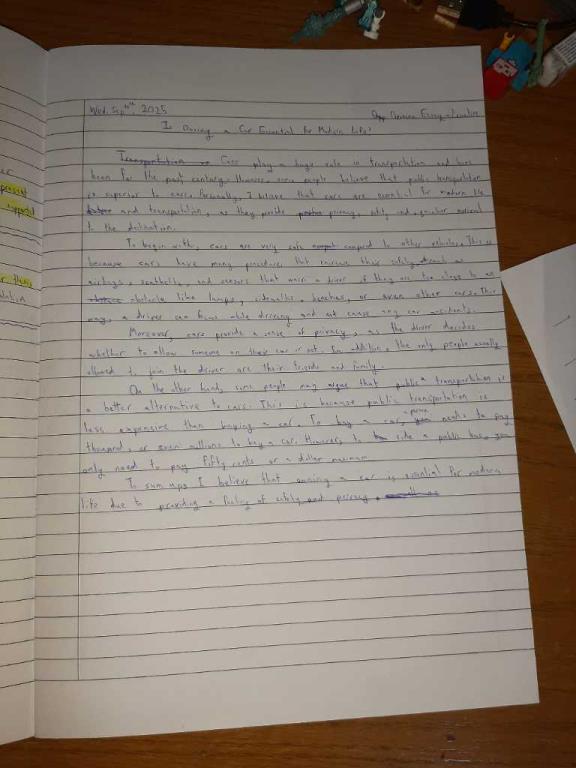 present
support
Wed. Sep 2025
Opp Opinion Essay
Is Owning a Car Essential for Modern Life?
Cars play a huge role in transportation and have
been for the past century. However, some people believe that public transportation
is superior to cars. Personally, I believe that cars are essential for modern life
and transportation, as they provide privacy, safety and
to the destination.
To begin with, cars are very safe compared to other vehicles. This is
because cars have many procedures that increase their safety such as
airbags, seatbelts, and sensors that warn a driver if they are too close to an
obstacle like lamps, sidewalks, benches, or even other cars. This
way, a driver can focus while driving and not cause any car accidents.
Moreover, cars provide a sense of privacy, as the driver decides
whether to allow someone on their car or not. In addition, the only people usually
allowed to join the driver are their friends and family.
On the other hand, some people may argue that public transportation is
a better alternative to cars. This is because public transportation is
less expensive than buying a car. To buy a car, a person needs to pay
thousand, or even millions to buy a car. However, to ride a public bus, you
only need to pay fifty cents or a dollar maximum.
To sum up, I believe that owning a car is essential for modern
life due to providing a feeling of safety and privacy.